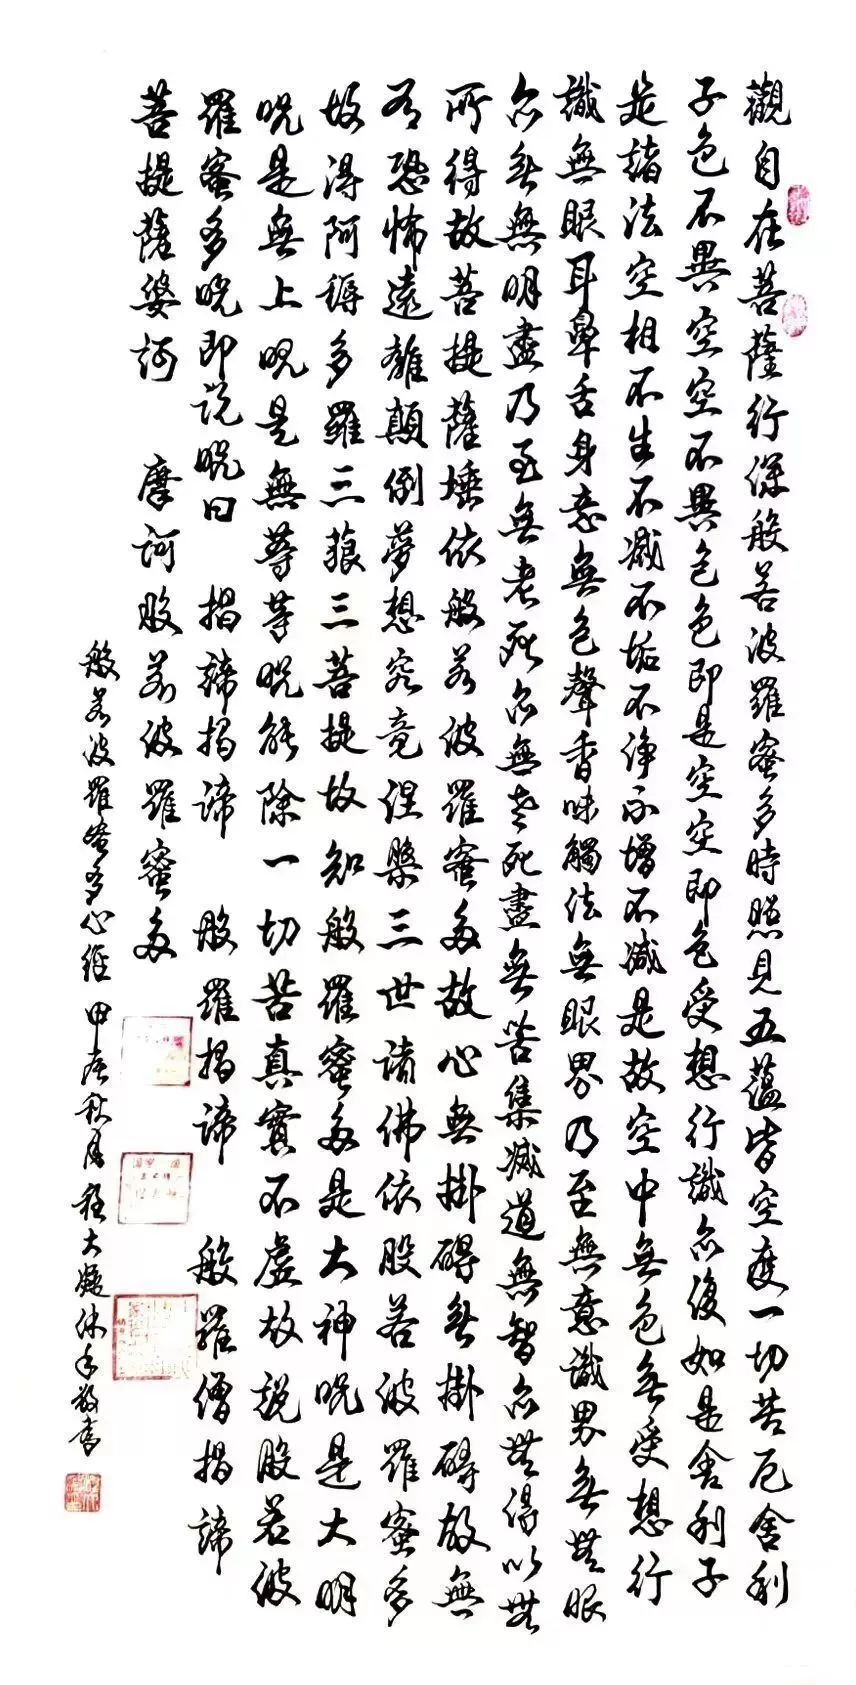 觀自在菩薩行深般若波羅蜜多時照見五蘊皆空度一切苦厄舍利
子色不異空空不異色色即是空空即色受想行識亦復如是舍利子
是諸法空相不生不滅不垢不淨不增不減是故空中無色無受想行
識無眼耳鼻舌身意無色聲香味觸法無眼界乃至無意識界無無眼
亦無無明盡乃至無老死亦無老死盡無苦集滅道無智亦無得以無
所得故菩提薩埵依般若波羅蜜多故心無掛礙無掛礙故無
有恐怖遠離顛倒夢想究竟涅槃三世諸佛依般若波羅蜜多
故得阿耨多羅三藐三菩提故知般羅蜜多是大神咒是大明
咒是無上咒是無等等咒能除一切苦真實不虛故說般若波
羅蜜多咒即說咒曰 揭諦揭諦 般羅揭諦 般羅僧揭諦
菩提薩婆訶 摩訶般若波羅蜜多
般若波羅蜜多心經 秋月 大 沐手敬書